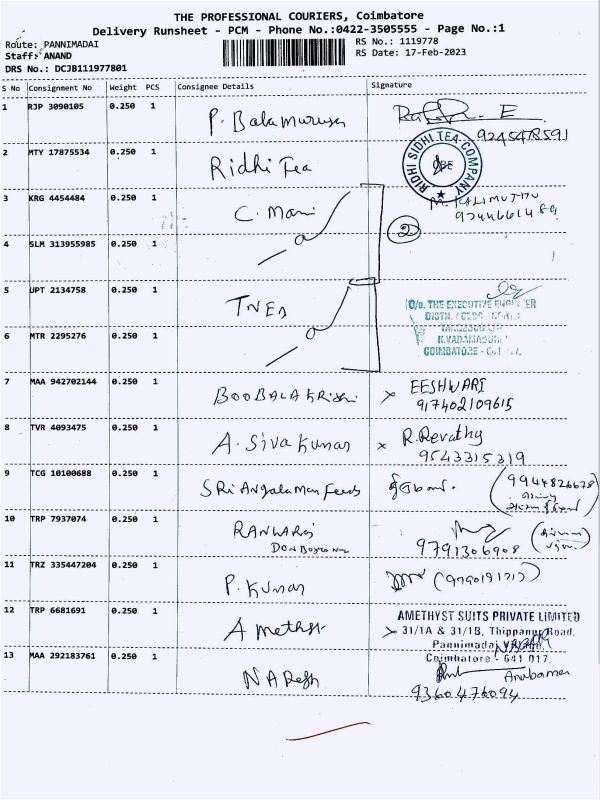 THE PROFESSIONAL COURIERS, Coimbatore
Delivery Runsheet - PCM - Phone No.:0422-3505555 - Page No.:1
Route: PANNIMADAI
RS No.: 1119778
Staff: ANAND
RS Date: 17-Feb-2023
DRS No.: DCJB111977801
S No Consignment No Weight PCS Consignee Details Signature
1 RJP 3090105 0.250 1 P. Balamurugan
9245478591
2 MTY 17875534 0.250 1 Ridhi Tea
RIDHI SIDHI TEA COMPANY
CBE
3 KRG 4454484 0.250 1 C. Mani
2
4 SLM 313955985 0.250 1
5 UPT 2134758 0.250 1 TNEB
O/o. THE EXECUTIVE ENGINEER
6 MTR 2295276 0.250 1
COIMBATORE
7 MAA 942702144 0.250 1 BOOBALAKRISHN x EESHWARI
917402109615
8 TVR 4093475 0.250 1 A. Siva Kumar x R.Revathy
9543315319
9 TCG 10100688 0.250 1 SRi Angalaman Feeds
(9944826678
10 TRP 7937074 0.250 1 RANWARS
DON BOSCO
9791306908
11 TRZ 335447204 0.250 1 P. Kumar
12 TRP 6681691 0.250 1 Amethyst
AMETHYST SUITS PRIVATE LIMITED
31/1A & 31/1B, Thippanur Road,
Pannimadai
Coimbatore - 641 017.
13 MAA 292183761 0.250 1 NARESH
9360476094